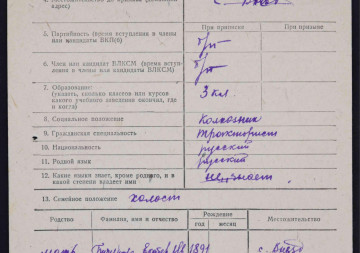 адрес)
с.
При приписке При призыве
5. Партийность (время вступления в члены
или кандидаты ВКП(б)
б/п
6. Член или кандидат ВЛКСМ (время вступ-
ления в члены или кандидаты ВЛКСМ)
б/п
7. Образование:
(указать, сколько классов или курсов
какого учебного заведения окончил, где
и когда)
3 кл.
8. Социальное положение колхозник
9. Гражданская специальность тракторист
10. Национальность русский
11. Родной язык русский
12. Какие языки знает, кроме родного, и в
какой степени владеет ими
не знает
13. Семейное положение холост
Родство Фамилия, имя и отчество Рождение Местожительство
год месяц
мать 1891 с.